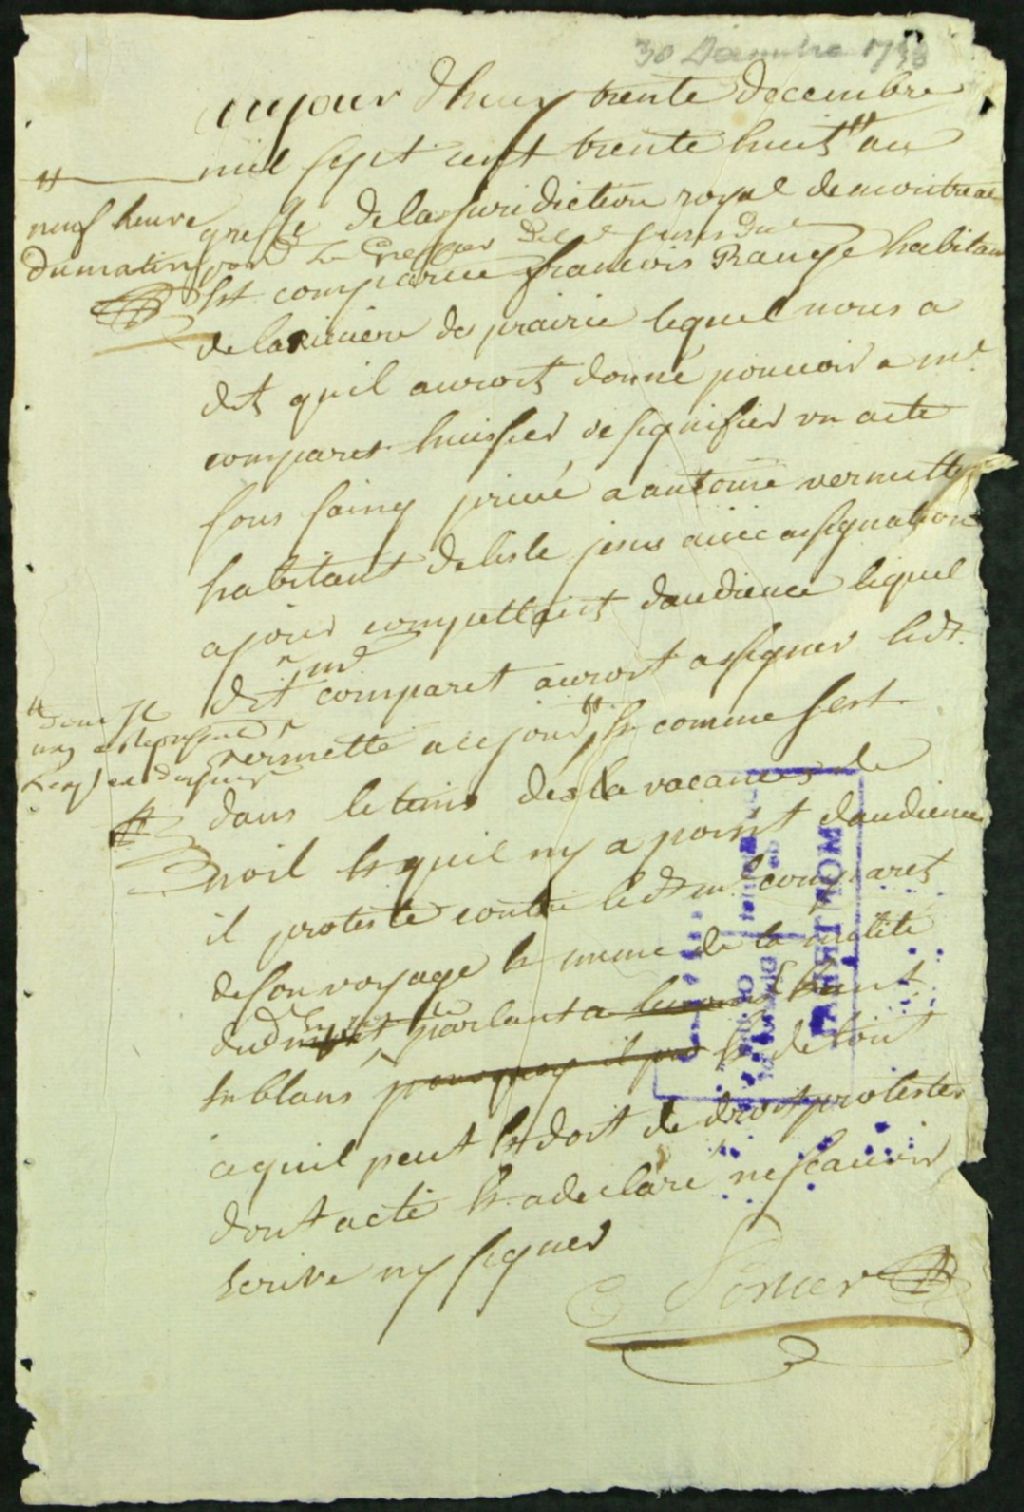 30 Decembre 1738
aujour dhuy trente decembre
mil sept cent trente huit # au
#
neuf heure
du matin
greffe de la Jurisdiction royal de montreal
pard. Le Greffier
Est comparu francois Rauge habitant
de la riviere des prairie lequel nous a
dit quil auroit donné pouvoir a mr.
comparet huissier de signifier un acte
sous saing privé a antoine vermette
habitant de lisle jesus avec assignation
a jour compettant daudience lequel
dit mr comparet auroit assigner ledt.
#
vermette a ce jourd. # Et comme sest
dans le tems des la vacances de
noel Et quil ny a point daudience
il proteste contre led. mr. comparet
de son voyage Et meme de la nullité
dud. parlant a
En blanc Et de tout
a quil peut Et doit de droit protester
dont acte Et a declaré ne scavoir
Ecrire ny signer
Porlier
MONTREAL